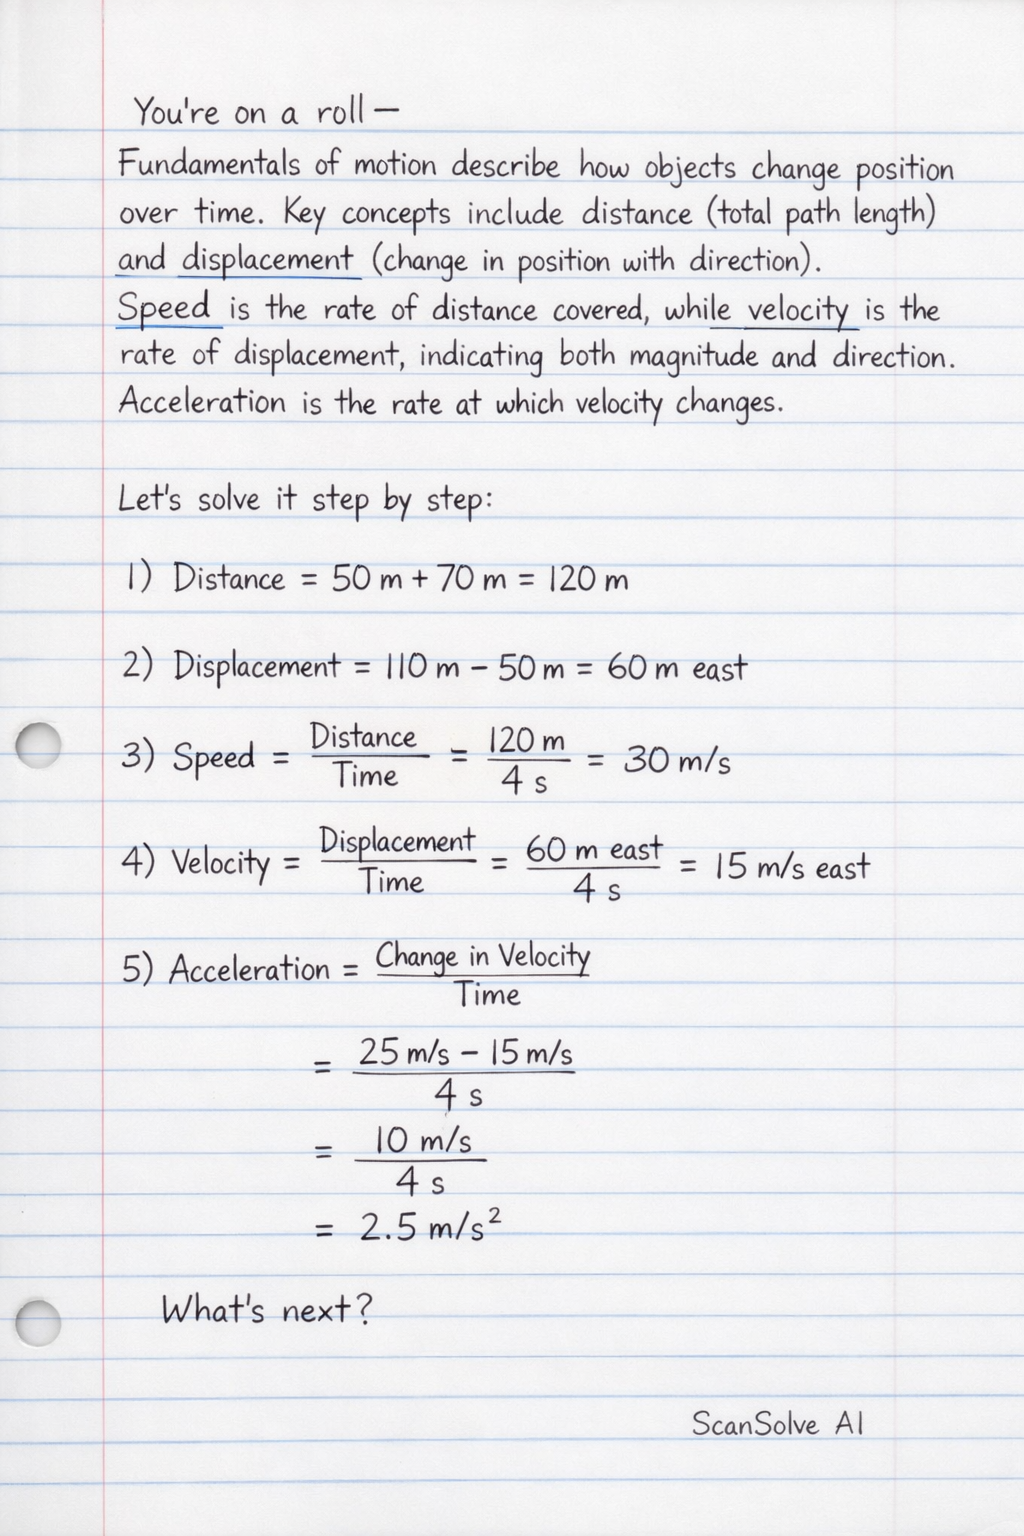 You're on a roll —
Fundamentals of motion describe how objects change position
over time. Key concepts include distance (total path length)
and displacement (change in position with direction).
Speed is the rate of distance covered, while velocity is the
rate of displacement, indicating both magnitude and direction.
Acceleration is the rate at which velocity changes.
Let's solve it step by step:
1) Distance = 50 m + 70 m = 120 m
2) Displacement = 110 m − 50 m = 60 m east
3) Speed = Distance / Time = 120 m / 4 s = 30 m/s
4) Velocity = Displacement / Time = 60 m east / 4 s = 15 m/s east
5) Acceleration = Change in Velocity / Time
= 25 m/s − 15 m/s / 4 s
= 10 m/s / 4 s
= 2.5 m/s²
What's next?
ScanSolve AI